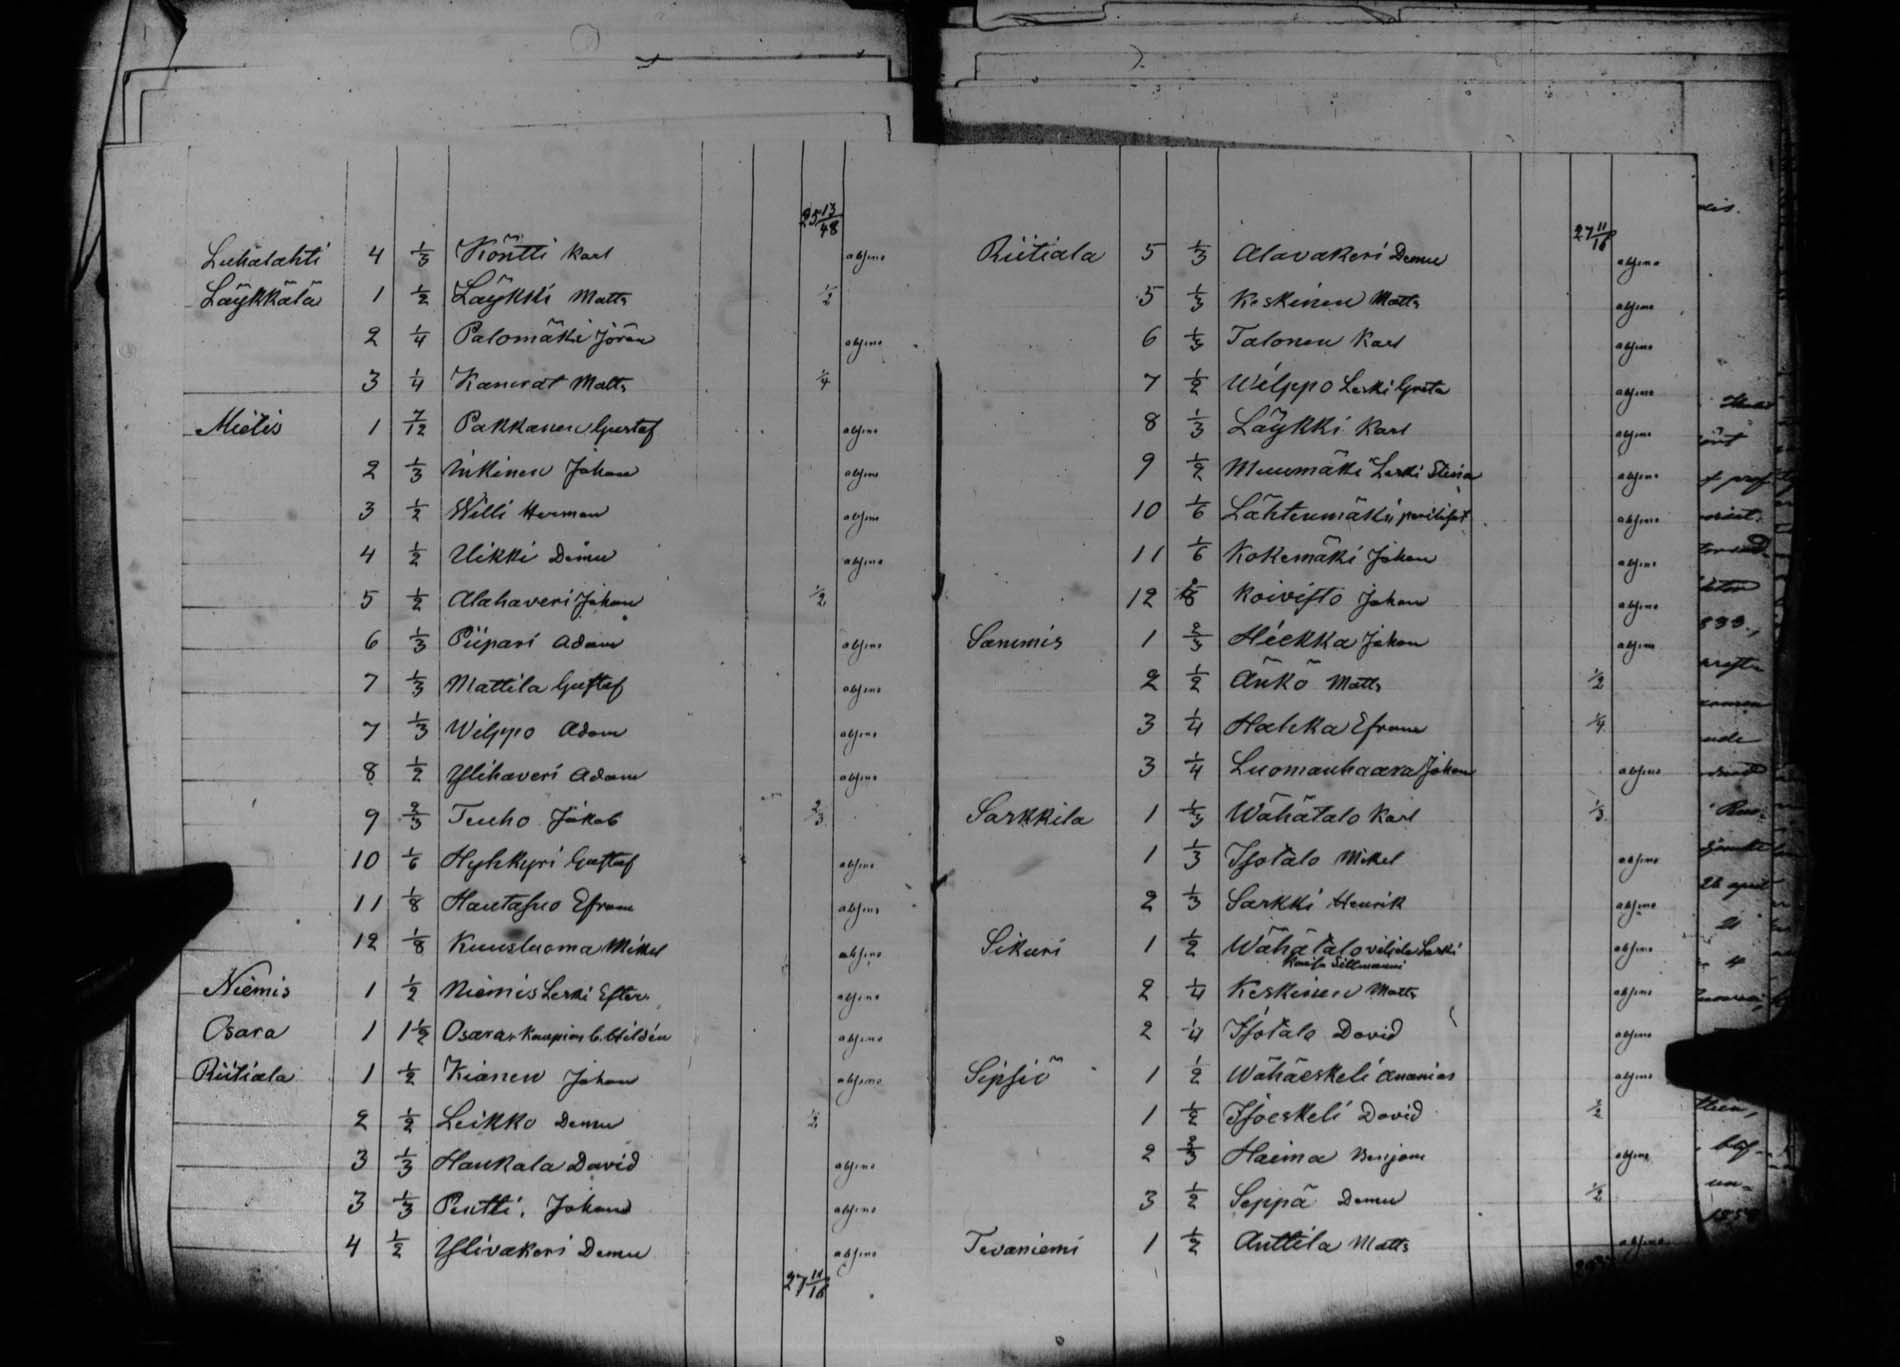 25 13/48
Luhalahti 4 1/3 Köntti Karl absens
Läykkälä 1 1/2 Läykki Matts 1/2
2 1/4 Palomäki Jöran absens
3 1/4 Kamrat Matts 1/4
Mietis 1 7/12 Pakkanen Gustaf absens
2 1/3 Inkinen Johan absens
3 1/2 Willi Herman absens
4 1/2 Uikki Demu absens
5 1/2 Alahaveri Johan 1/2
6 1/3 Piipari Adam absens
7 1/3 Mattila Gustaf absens
7 1/3 Wilppo Adam absens
8 1/2 Ylihaveri Adam absens
9 2/3 Tuuho Jakob 2/3
10 1/6 Hyhkyri Gustaf absens
11 1/8 Hautasuo Efram absens
12 1/8 Kuusluoma Mikel absens
Niemis 1 1/2 Niemis Leski Ester absens
Osara 1 1 1/2 Osara, Kaupias C. Hildén absens
Riitiala 1 1/2 Kianen Johan absens
2 1/2 Leikko Demu 1/2
3 1/3 Haukala David absens
3 1/3 Pentti, Johan absens
4 1/2 Ylivakeri Demu absens
27 11/16
27 11/16
Riitiala 5 1/3 Alavakeri Demu absens
5 1/3 Keskinen Matts absens
6 1/3 Talonen Karl absens
7 1/2 Wilppo Leski Greta absens
8 1/3 Läykki Karl absens
9 1/2 Muumäki Leski Stina absens
10 1/6 Lähteenmäki perilliset absens
11 1/6 Kokemäki Johan absens
12 Koivisto Johan absens
Sammis 1 2/3 Hiekka Johan absens
2 1/2 Änkö Matts 1/2
3 1/4 Hahka Efram 1/4
3 1/4 Luomanhaara Johan absens
Sarkkila 1 1/3 Wähätalo Karl 1/3
1 1/3 Isotalo Mikel absens
2 1/3 Sarkki Henrik absens
Sikuri 1 1/2 Wähätalo viljele Leski absens
Kaisa Sillmanni
2 1/4 Keskinen Matts absens
2 1/4 Isotalo David absens
Sipsiö 1 1/2 Wähäeskeli Ananias absens
1 1/2 Isoeskeli David 1/2
2 2/3 Haima Benjam absens
3 1/2 Seppä Demu 1/2
Tevaniemi 1 1/2 Anttila Matts absens